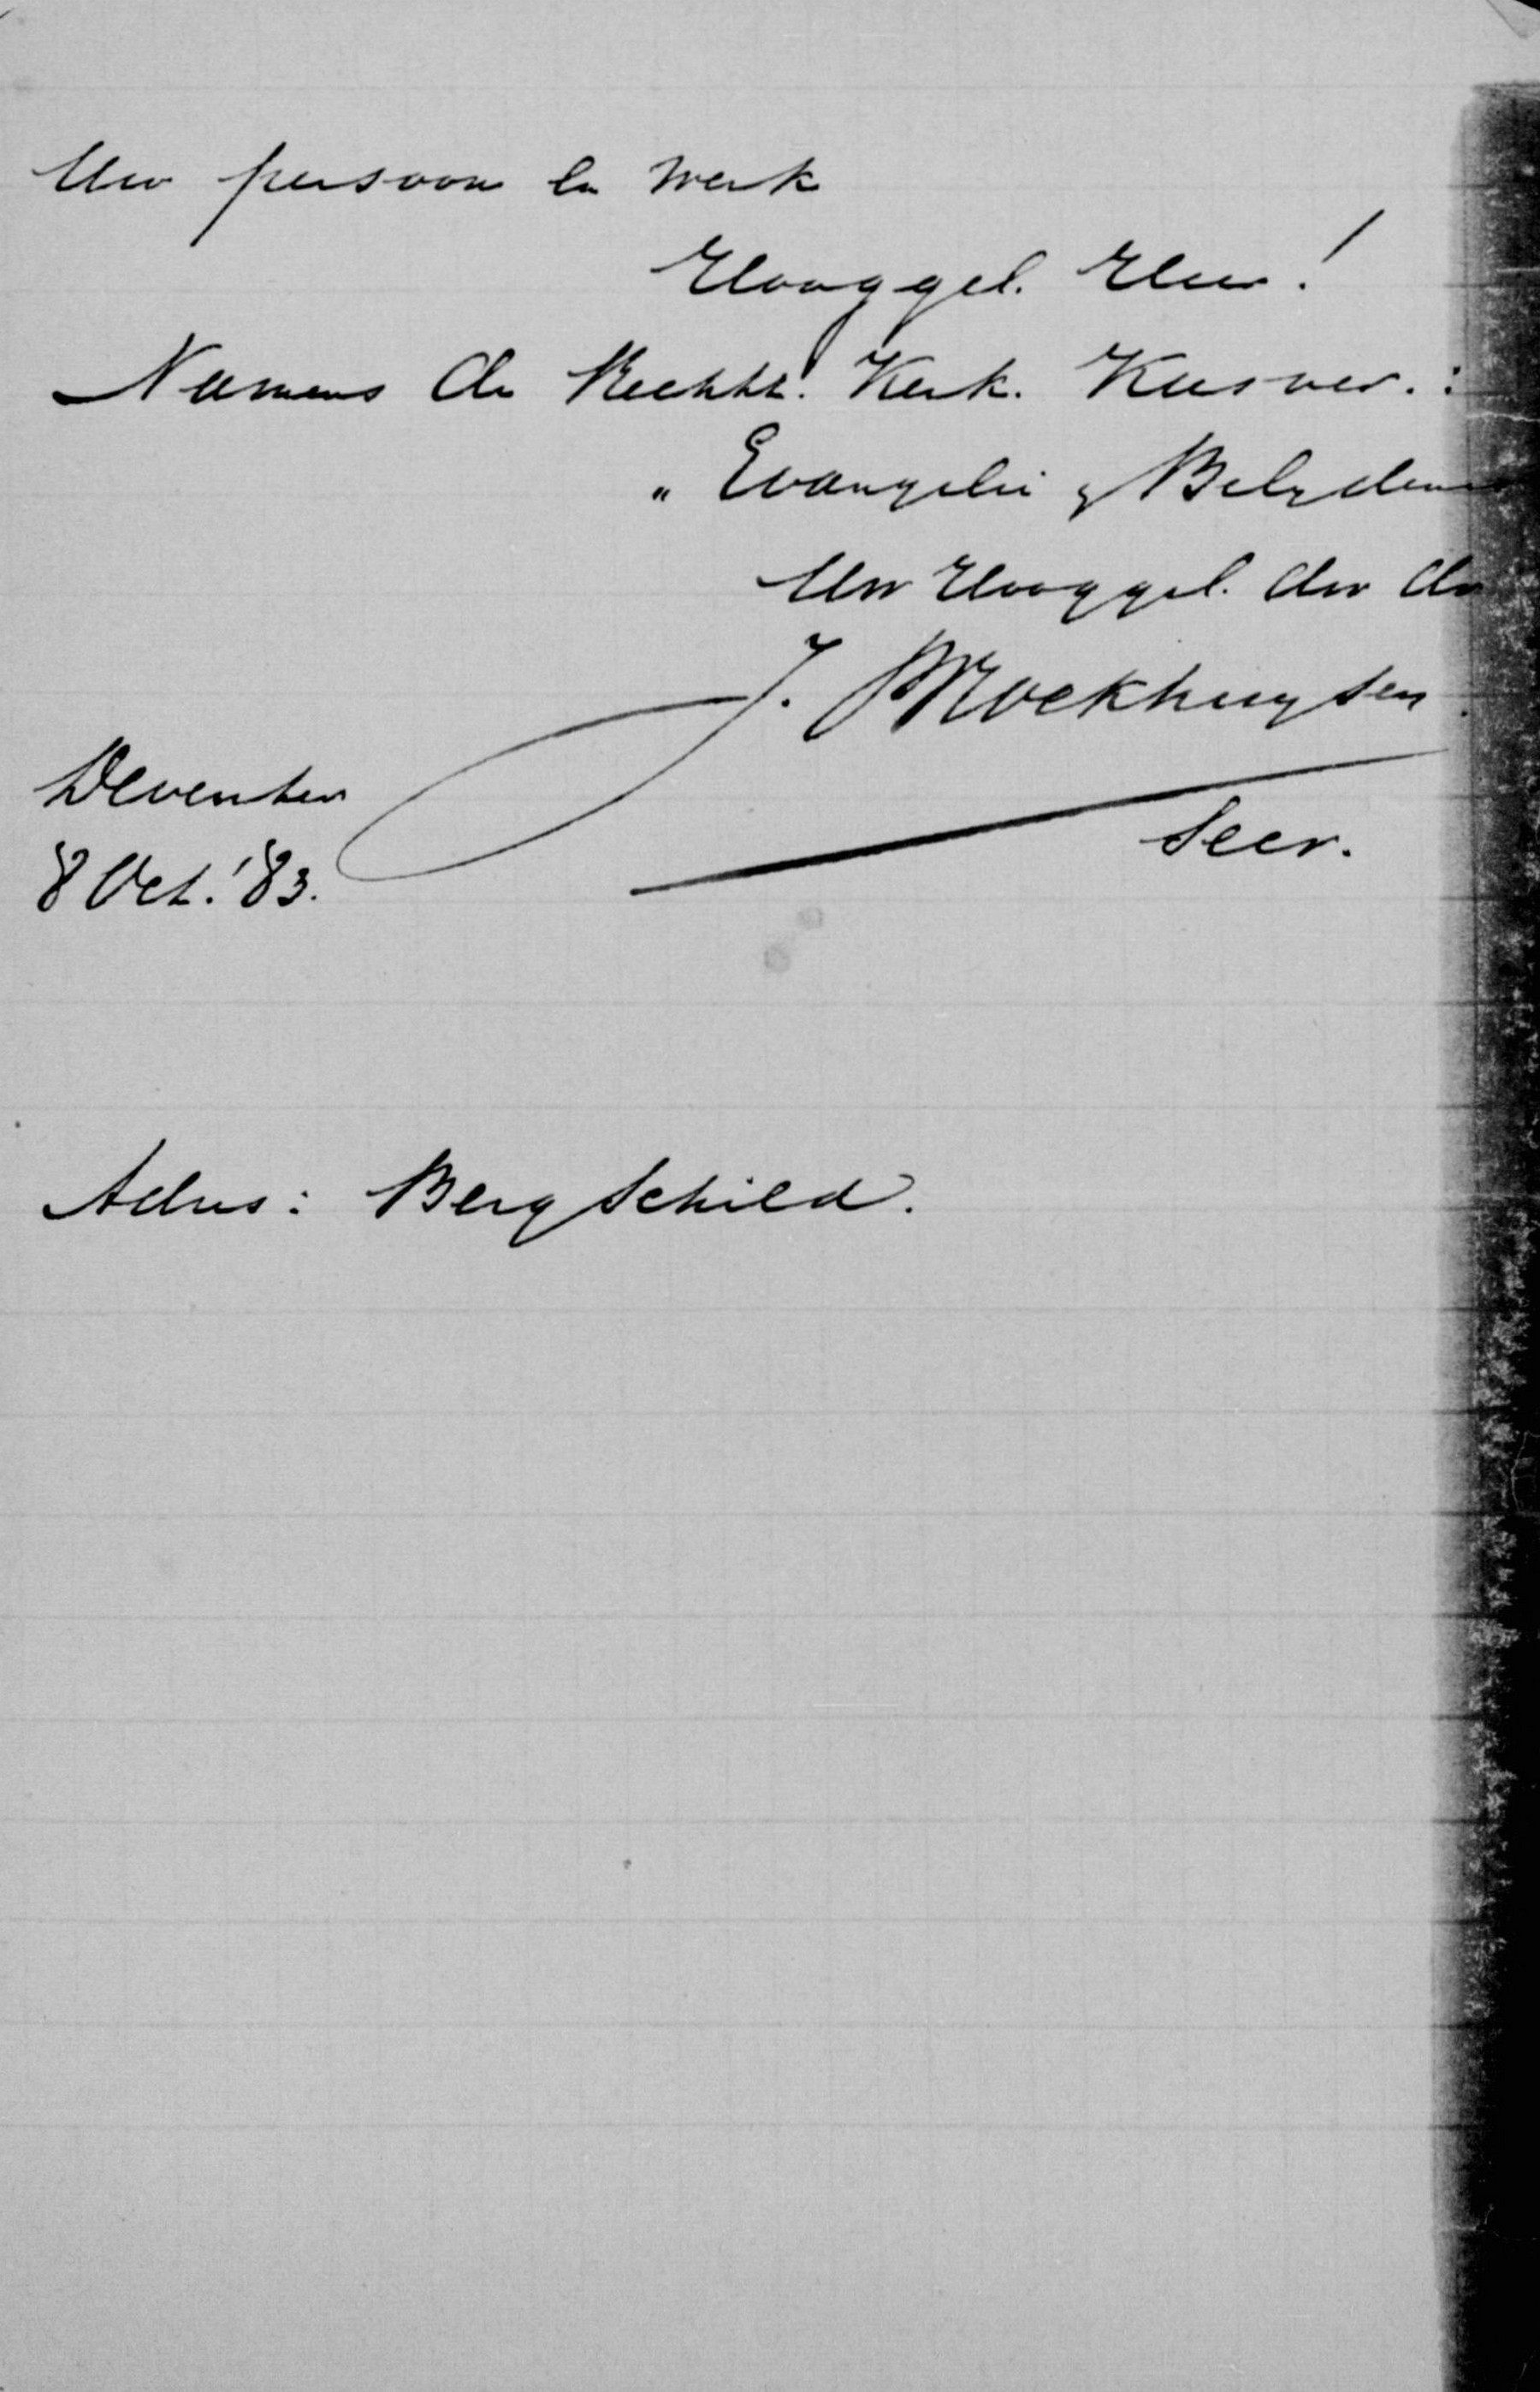 Uw persoon en werk
Hooggel. Heer!
Namens de Rechtz. Kerk. Kiesver.:
„ Evangelie & Belijdenis
Uw Hooggel. dw. dr
J. Broekhuysen.
Secr.
Deventer
8 Oct. '83.
Adres: Bergschild.